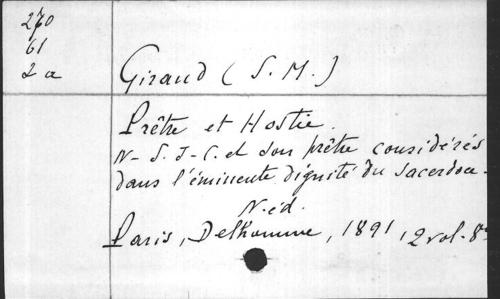 270
61
2 a
Giraud (S. M.)
Prêtre et Hostie.
N-S. J-C. et son prêtre considérés
dans l'éminente dignité du sacerdoce.
N. éd.
Paris, Delhomme, 1891, 2 vol. 8°